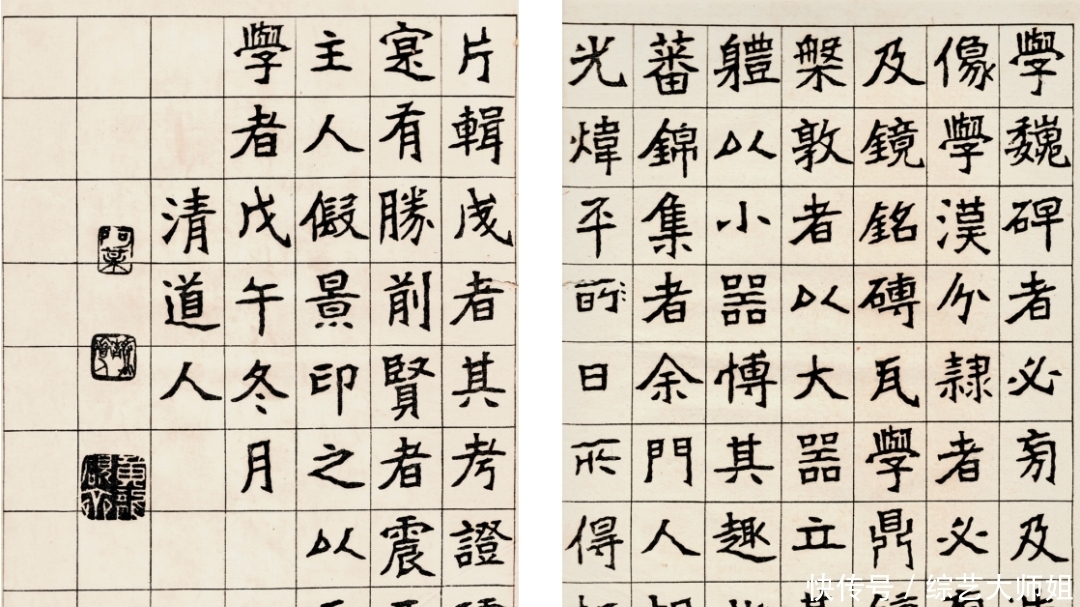 學魏碑者必旁及
像學漢分隸者必
及鏡銘磚瓦學鼎
槃敦者以大器立
軆以小器博其趣
蕃錦集者余門人
光煒平時日所得
片輯成者其考證
寔有勝前賢者震
主人假景印之以
學者戊午冬月
清道人
快传号 / 综艺大师姐